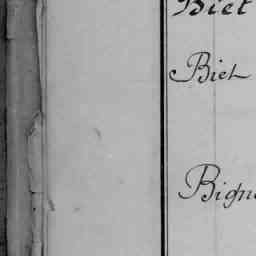 Biet
Biet
Bign